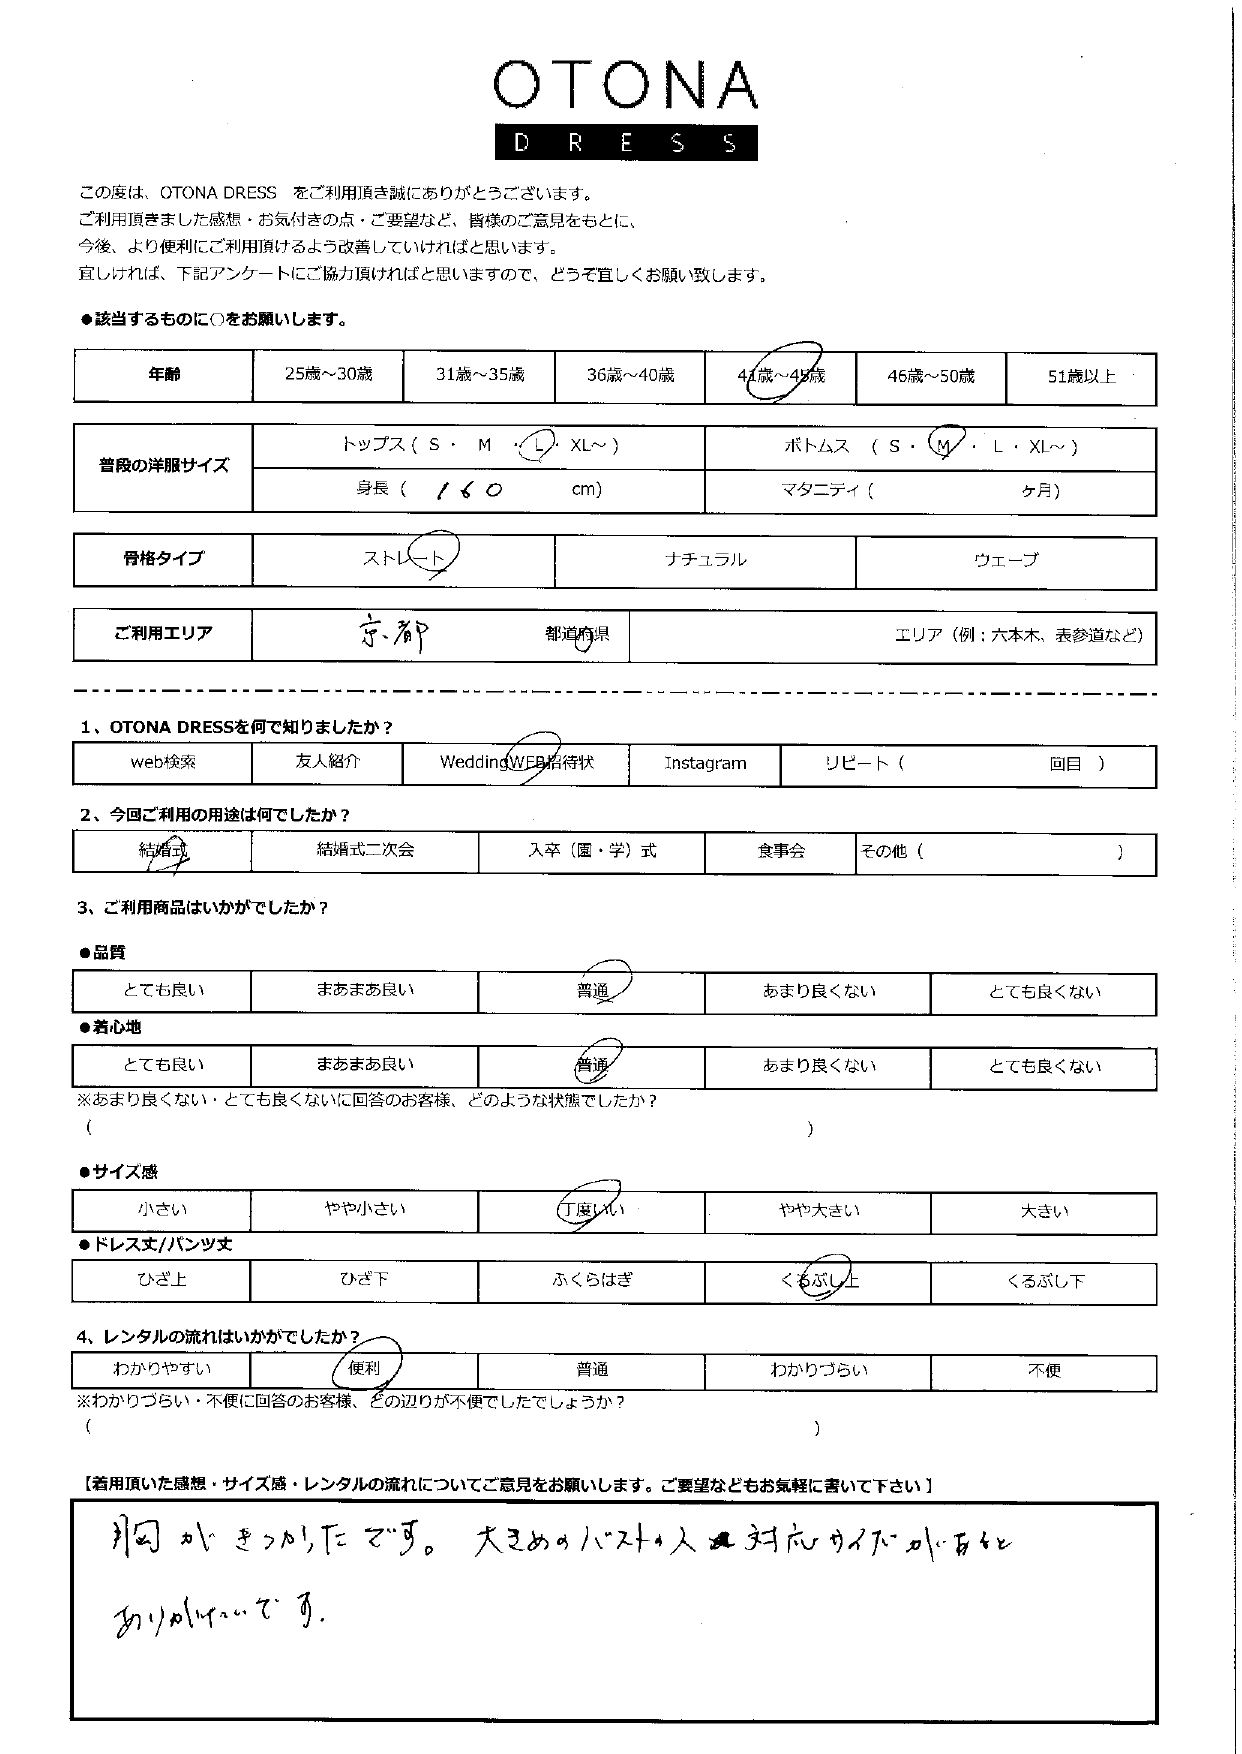 OTONA
DRESS
この度は、OTONA DRESS　をご利用頂き誠にありがとうございます。
ご利用頂きました感想・お気付きの点・ご要望など、皆様のご意見をもとに、
今後、より便利にご利用頂けるよう改善していければと思います。
宜しければ、下記アンケートにご協力頂ければと思いますので、どうぞ宜しくお願い致します。
●該当するものに○をお願いします。
年齢 25歳～30歳 31歳～35歳 36歳～40歳 41歳～45歳 46歳～50歳 51歳以上
普段の洋服サイズ トップス ( S ・ M ・ L ・ XL～ ) ボトムス ( S ・ M ・ L ・ XL～ )
身長 ( 160 cm) マタニティ ( ヶ月)
骨格タイプ ストレート ナチュラル ウェーブ
ご利用エリア 京都 都道府県 エリア（例：六本木、表参道など）
1、OTONA DRESSを何で知りましたか？
web検索 友人紹介 WeddingWEB招待状 Instagram リピート ( 回目 )
2、今回ご利用の用途は何でしたか？
結婚式 結婚式二次会 入卒（園・学）式 食事会 その他 ( )
3、ご利用商品はいかがでしたか？
●品質
とても良い まあまあ良い 普通 あまり良くない とても良くない
●着心地
とても良い まあまあ良い 普通 あまり良くない とても良くない
※あまり良くない・とても良くないに回答のお客様、どのような状態でしたか？
( )
●サイズ感
小さい やや小さい 丁度いい やや大きい 大きい
●ドレス丈/パンツ丈
ひざ上 ひざ下 ふくらはぎ くるぶし上 くるぶし下
4、レンタルの流れはいかがでしたか？
わかりやすい 便利 普通 わかりづらい 不便
※わかりづらい・不便に回答のお客様、どの辺りが不便でしたでしょうか？
( )
【着用頂いた感想・サイズ感・レンタルの流れについてご意見をお願いします。ご要望などもお気軽に書いて下さい】
胸がきつかったです。大きめのバストの人 対応サイズがあると
ありがたいです.